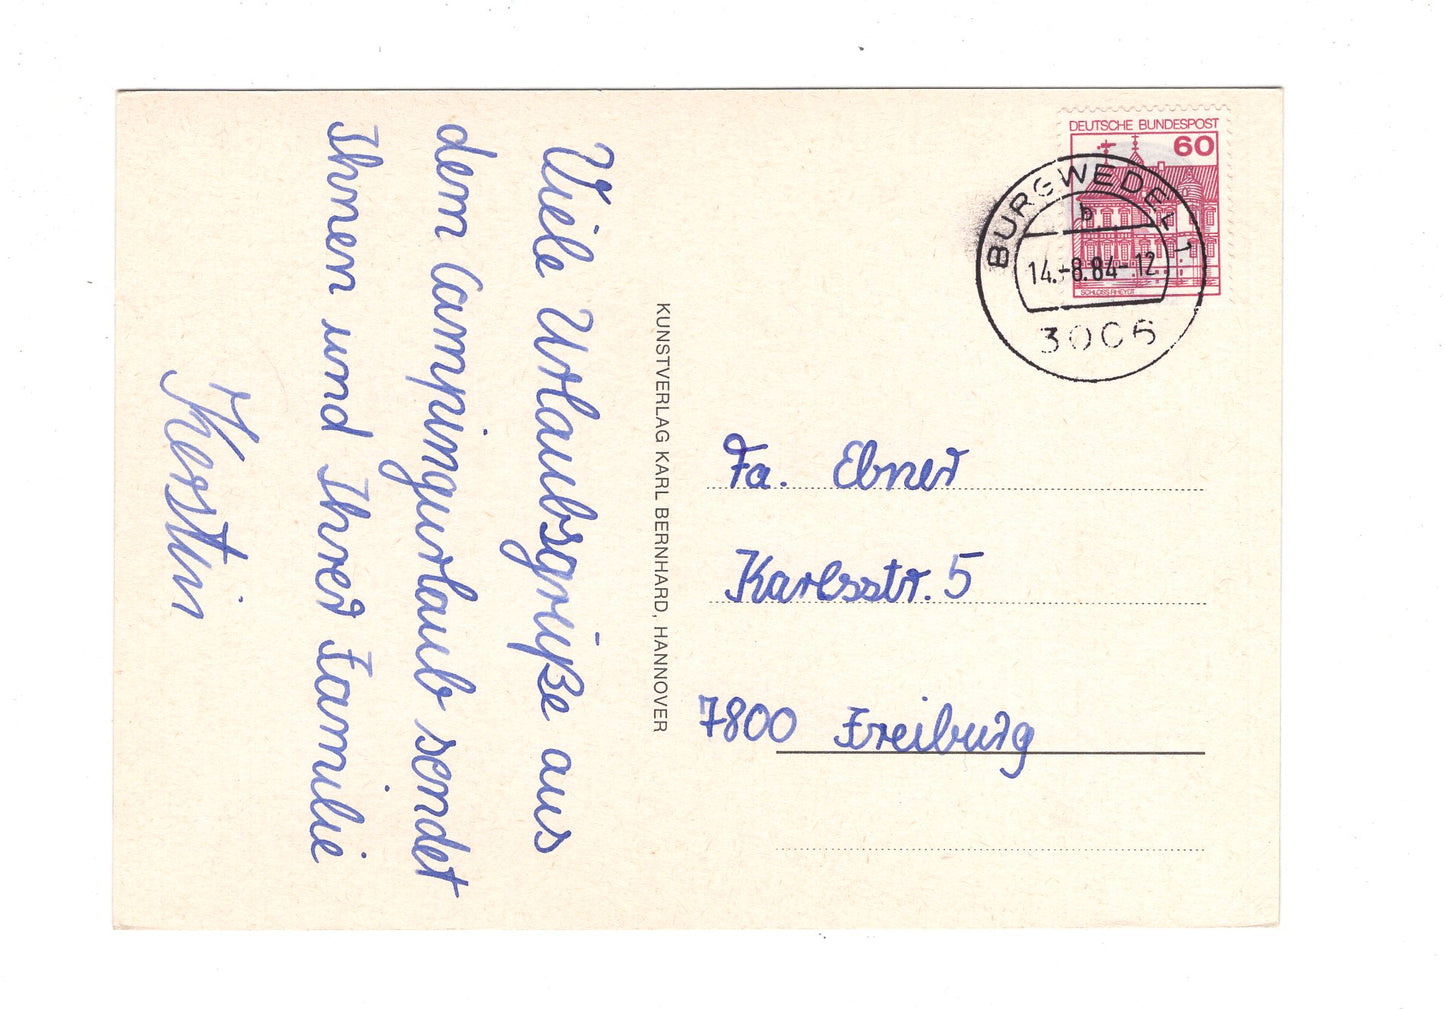 Viele Urlaubsgrüße aus
dem Campingurlaub sendet
Ihnen und Ihrer Familie
Kerstin
KUNSTVERLAG KARL BERNHARD, HANNOVER
DEUTSCHE BUNDESPOST
60
SCHLOSS RHEYDT
BURGWEDEL 1
b
14.-8.84-12
3006
Fa. Ebner
Karlsstr. 5
7800 Freiburg